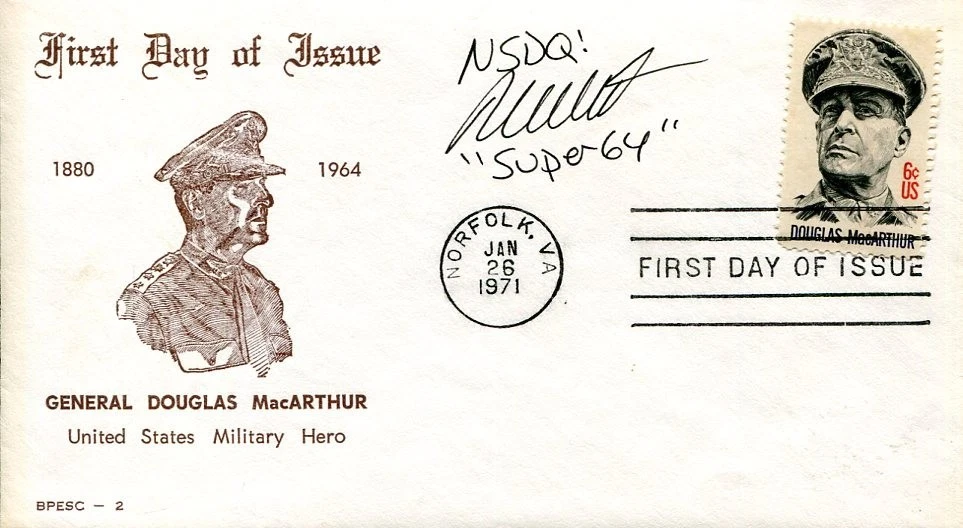 First Day of Issue
1880
1964
GENERAL DOUGLAS MacARTHUR
United States Military Hero
BPESC – 2
NSDQ!
"Super 64"
NORFOLK, VA
JAN
26
1971
6¢
US
DOUGLAS MacARTHUR
FIRST DAY OF ISSUE